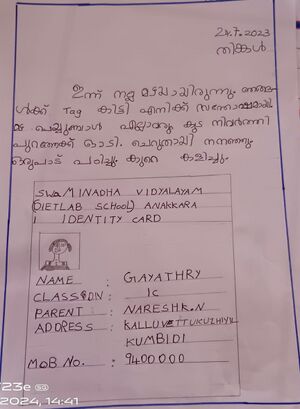 24.7.2023
തിങ്കൾ
ഇന്ന് നല്ല മഴയായിരുന്നു. ഞങ്ങ
ൾക്ക് Tag കിട്ടി എനിക്ക് സന്തോഷമായി
മഴ പെയ്യുമ്പോൾ എല്ലാവരും കുട നിവർത്തി
പുറത്തേക്ക് ഓടി. ചെറുതായി നനഞ്ഞു
ഒരുപാട് പഠിച്ചു കുറെ കളിച്ചു.
SWAMINADHA VIDYALAYAM
(DIETLAB SCHOOL) ANAKKARA
IDENTITY CARD
NAME : GAYATHRY
CLASS&DN : 1C
PARENT : NARESH.K.N
ADDRESS : KALLUVETTUKUZHIYIL
KUMBIDI
MOB NO. : 9400000
Y23e 5G
2024, 14:41